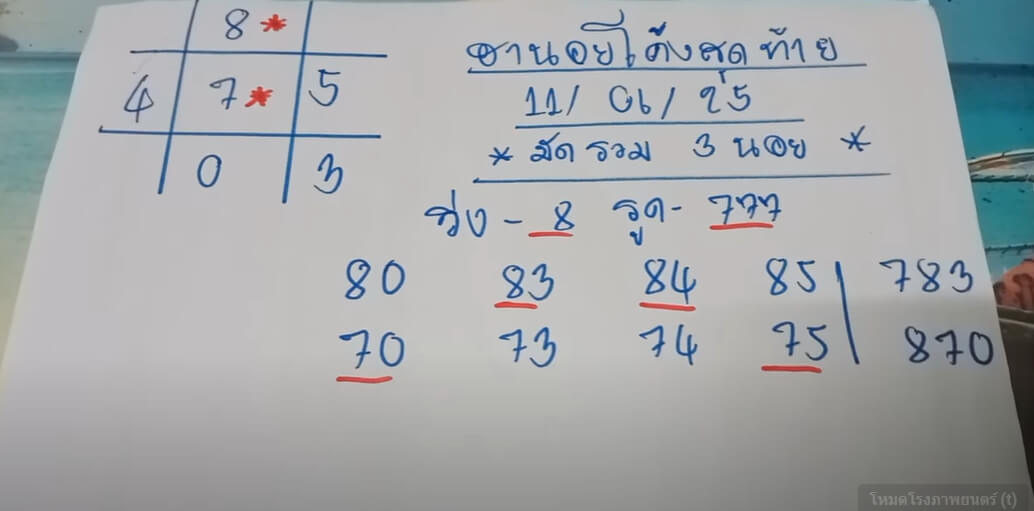 8*
4 7* 5
0 3
ฮานอยโค้งสุดท้าย
11/ 06/ 25
* มัดรวม 3 นอย *
วิ่ง - 8 รูด - 777
80 83 84 85 | 783
70 73 74 75 | 870
โหมดโรงภาพยนตร์ (t)